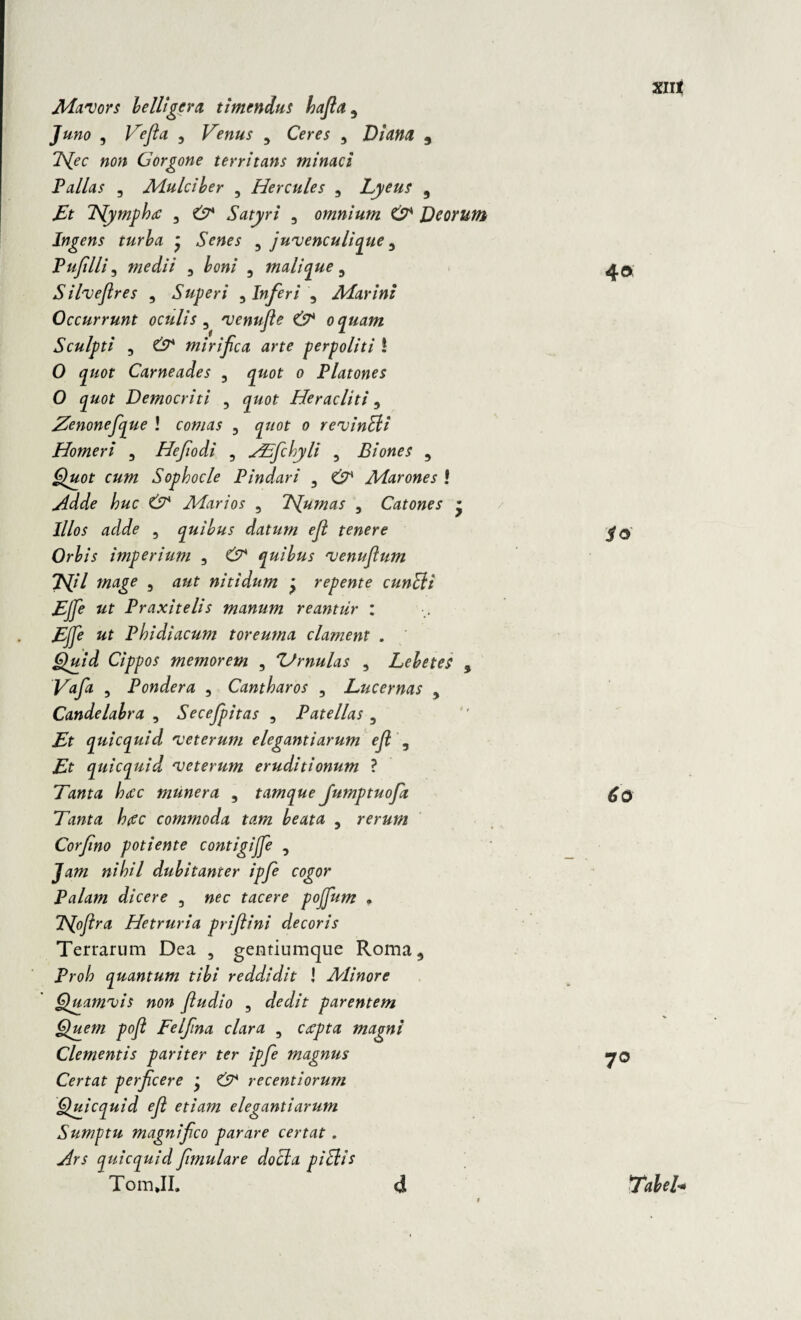 XIII
Mavors belligera timendus hasta,
Juno, Vesta, Venus, Ceres, Diana,
Nec non Gorgone territans minaci
Pallas, Mulciber, Hercules, Lyeus,
Et Nymphæ, & Satyri, omnium & Deorum
Ingens turba; Senes, juvenculique,
Pusilli, medii, boni, malique, 40
Silvestres, Superi, Inferi, Marini
Occurrunt oculis, venuste & o quam
Sculpti, & mirifica arte perpoliti!
O quot Carneades, quot o Platones
O quot Democriti, quot Heracliti,
Zenonesque! comas, quot o revincti
Homeri, Hesiodi, Æschyli, Biones,
Quot cum Sophocle Pindari, & Marones!
Adde huc & Marios, Numas, Catones;
Illos adde, quibus datum est tenere 50
Orbis imperium, & quibus venustum
Nil mage, aut nitidum; repente cuncti
Esse ut Praxitelis manum reantur:
Esse ut Phidiacum toreuma clament.
Quid Cippos memorem, Urnulas, Lebetes,
Vasa, Pondera, Cantharos, Lucernas,
Candelabra, Secespitas, Patellas,
Et quicquid veterum elegantiarum est,
Et quicquid veterum eruditionum?
Tanta hæc munera, tamque sumptuosa 60
Tanta hæc commoda tam beata, rerum
Corsino potiente contigisse,
Jam nihil dubitanter ipse cogor
Palam dicere, nec tacere possum.
Nostra Hetruria pristini decoris
Terrarum Dea, gentiumque Roma,
Proh quantum tibi reddidit! Minore
Quamvis non studio, dedit parentem
Quem post Felsina clara, cæpta magni
Clementis pariter ter ipse magnus 70
Certat perficere; & recentiorum
Quicquid est etiam elegantiarum
Sumptu magnifico parare certat.
Ars quicquid simulare docta pictis
Tom.II. d Tabel-